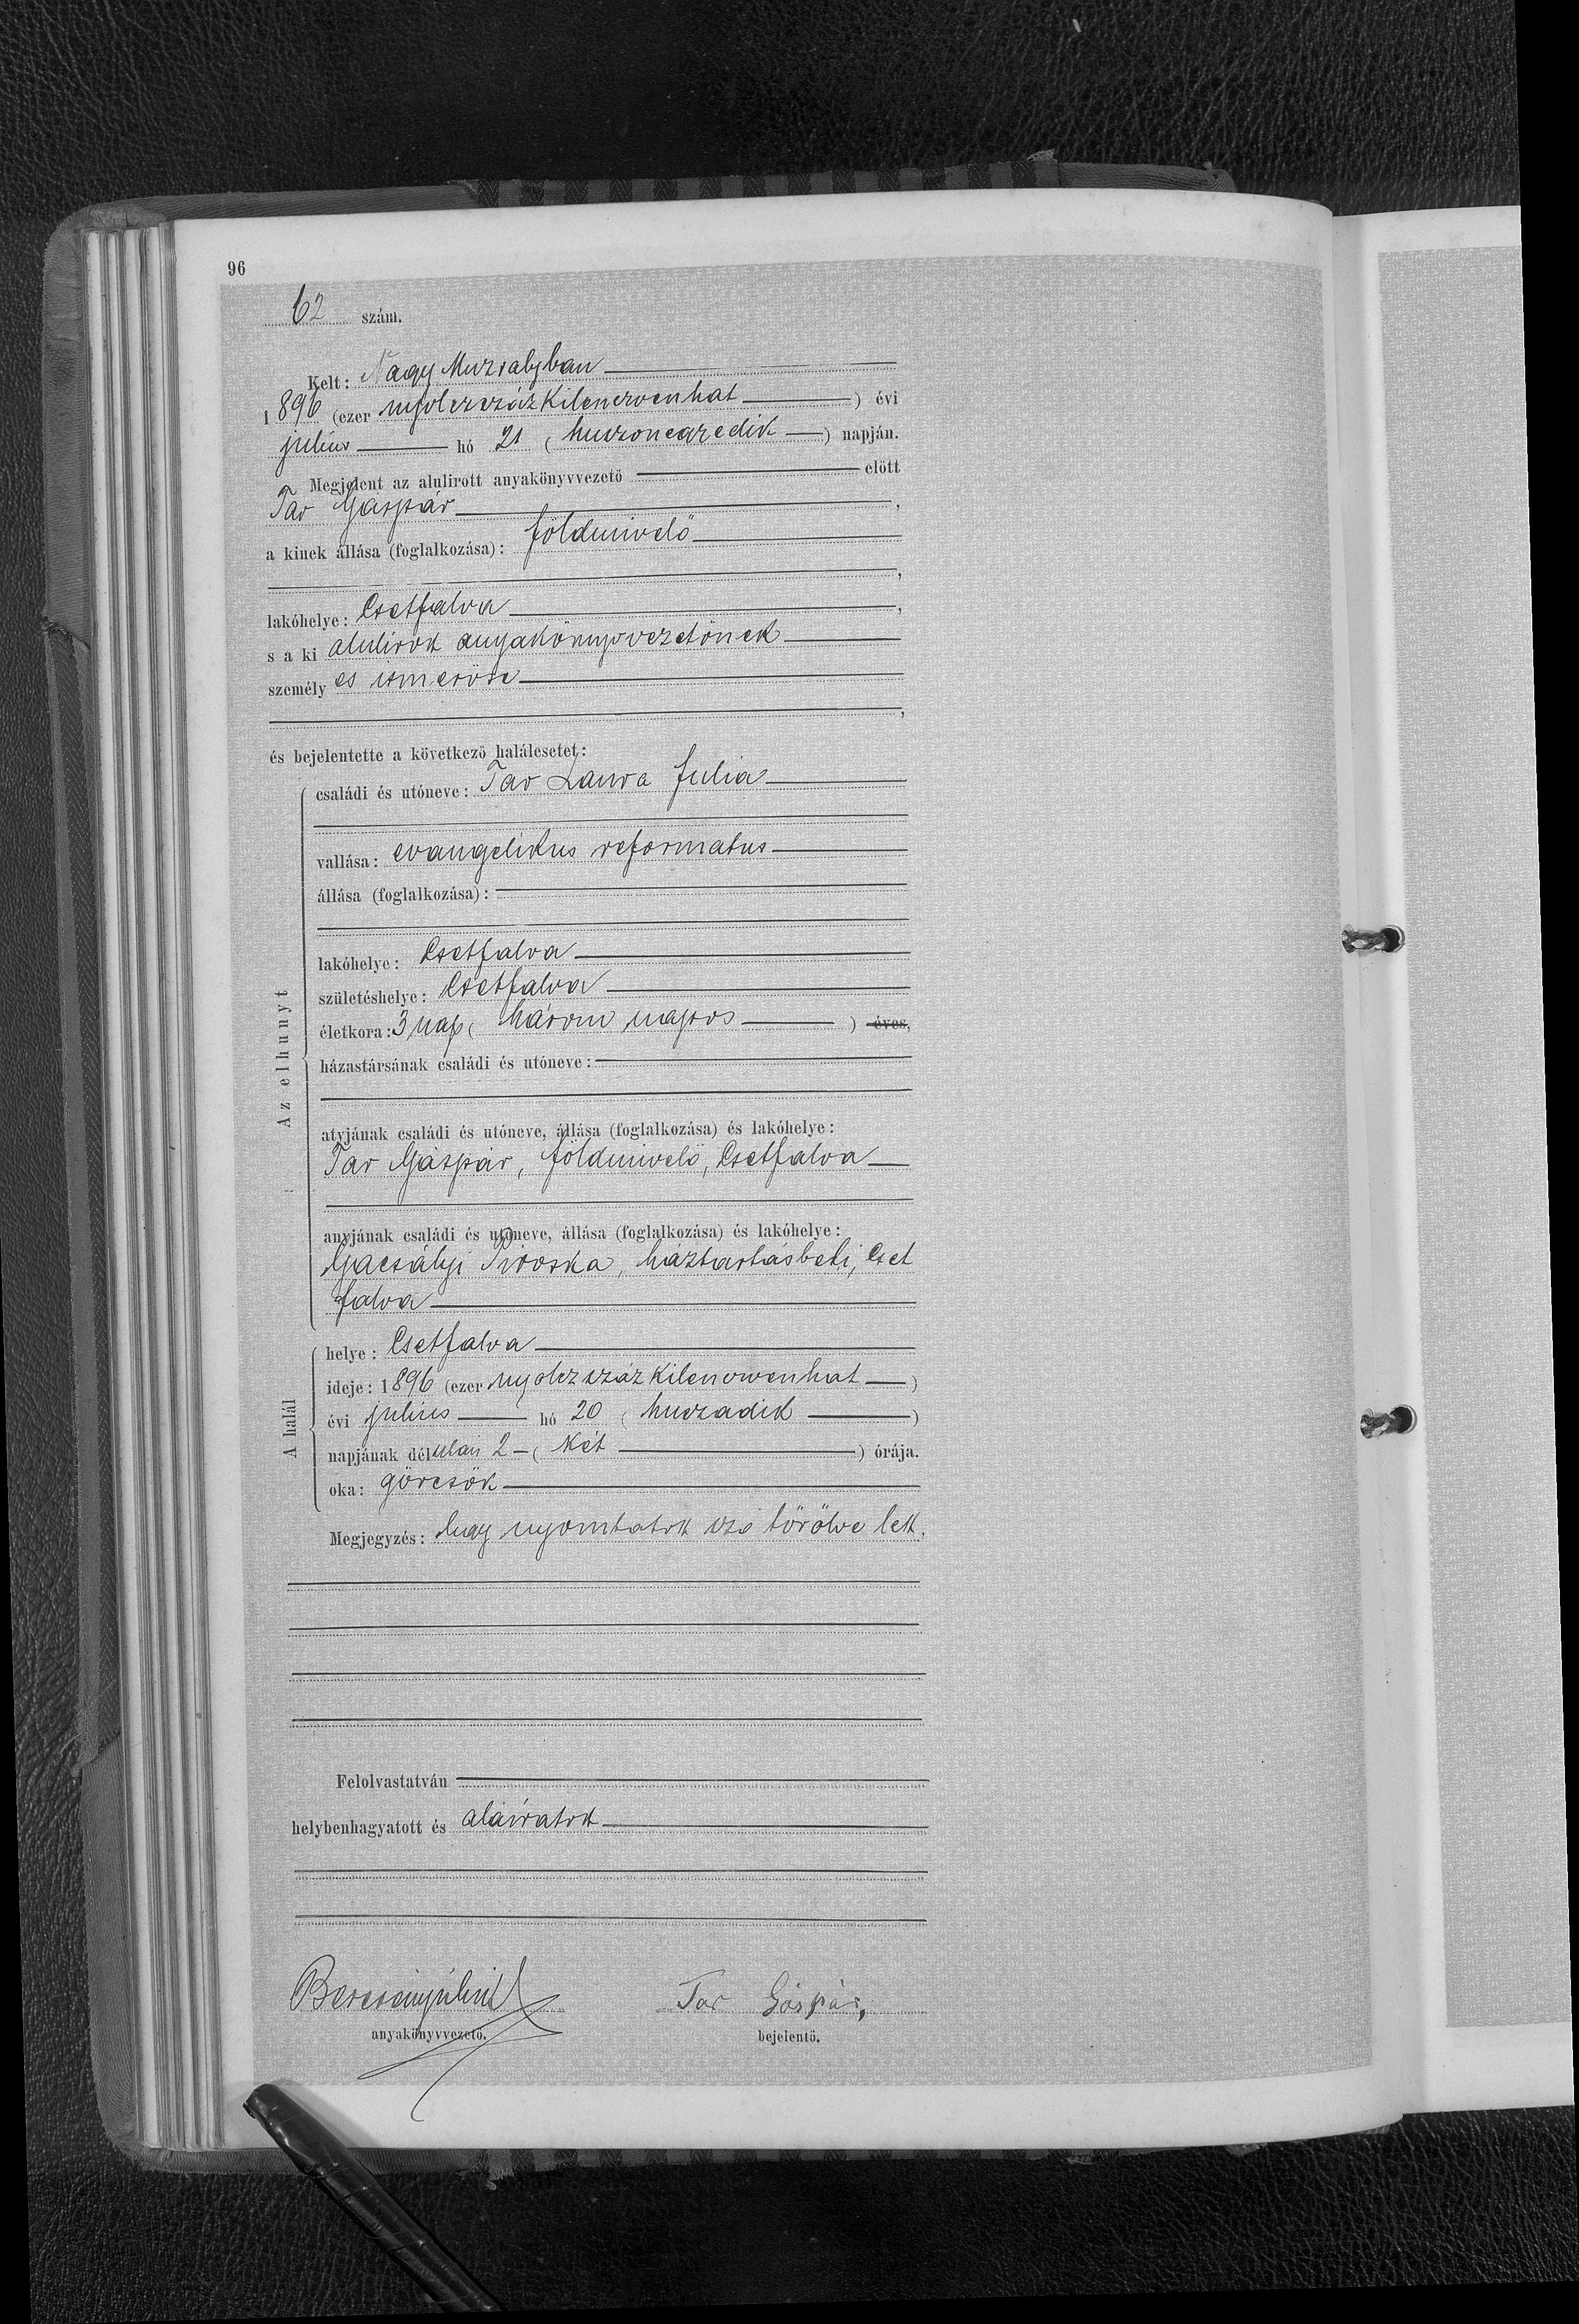 96
62 szám.
Kelt: Nagy Muzsalyban
1896 (ezer nyolczszázkilenczvenhat) évi
julius hó 21 (huszonegyedik) napján.
Megjelent az alulirott anyakönyvvezető előtt
Tar Gáspár,
a kinek állása (foglalkozása): földmivelő
,
lakóhelye: Csetfalva,
s a ki alulirott anyakönyvvezetőnek
személyes ismerőse
,
és bejelentette a következő halálesetet:
családi és utóneve: Tar Laura Julia
vallása: evangelikus reformatus
állása (foglalkozása):
lakóhelye: Csetfalva
születéshelye: Csetfalva
életkora: 3 nap (három napos) éves,
házastársának családi és utóneve:
atyjának családi és utóneve, állása (foglalkozása) és lakóhelye:
Tar Gáspár, földmivelő, Csetfalva
anyjának családi és utóneve, állása (foglalkozása) és lakóhelye:
Gacsályi Piroska, háztartásbeli, Cset
falva
Az elhunyt
helye: Csetfalva
ideje: 1896 (ezer nyolczszázkilenczvenhat)
évi julius hó 20 (huszadik)
napjának délután 2 (két) órája.
oka: görcsök
A halál
Megjegyzés: hugy nyomtatott szó törölve lett.
Felolvastatván
helybenhagyatott és aláiratott
Tar Gáspár,
anyakönyvvezető. bejelentő.